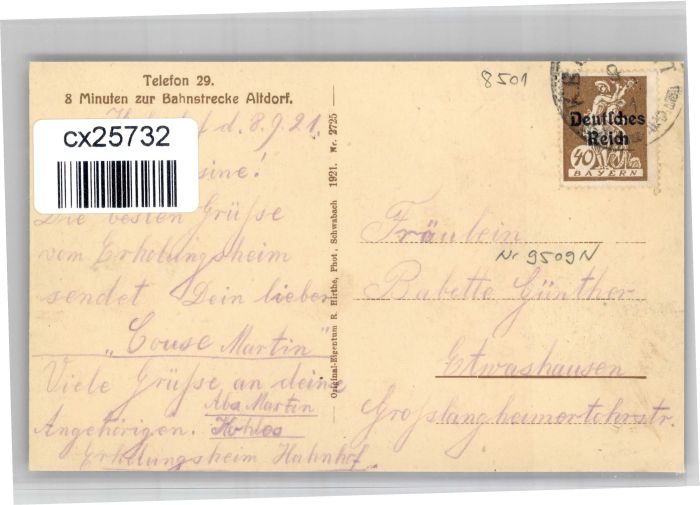 Telefon 29.
8 Minuten zur Bahnstrecke Altdorf.
d. 8.9.21.
cx25732
sine!
Die besten Grüße
vom Erholungsheim
sendet Dein lieber
"Couse Martin"
Viele Grüße an deine
Angehörigen.
Abs Martin
Kohles
Erholungsheim Hahnhof.
Original-Eigentum R. Hirthe, Phot., Schwabach 1921. Nr. 2725
8501
Deutsches
Reich
40
BAYERN
Fräulein
Nr 9509N
Babette Günther
Etwashausen
Großlangheimertohrstr.